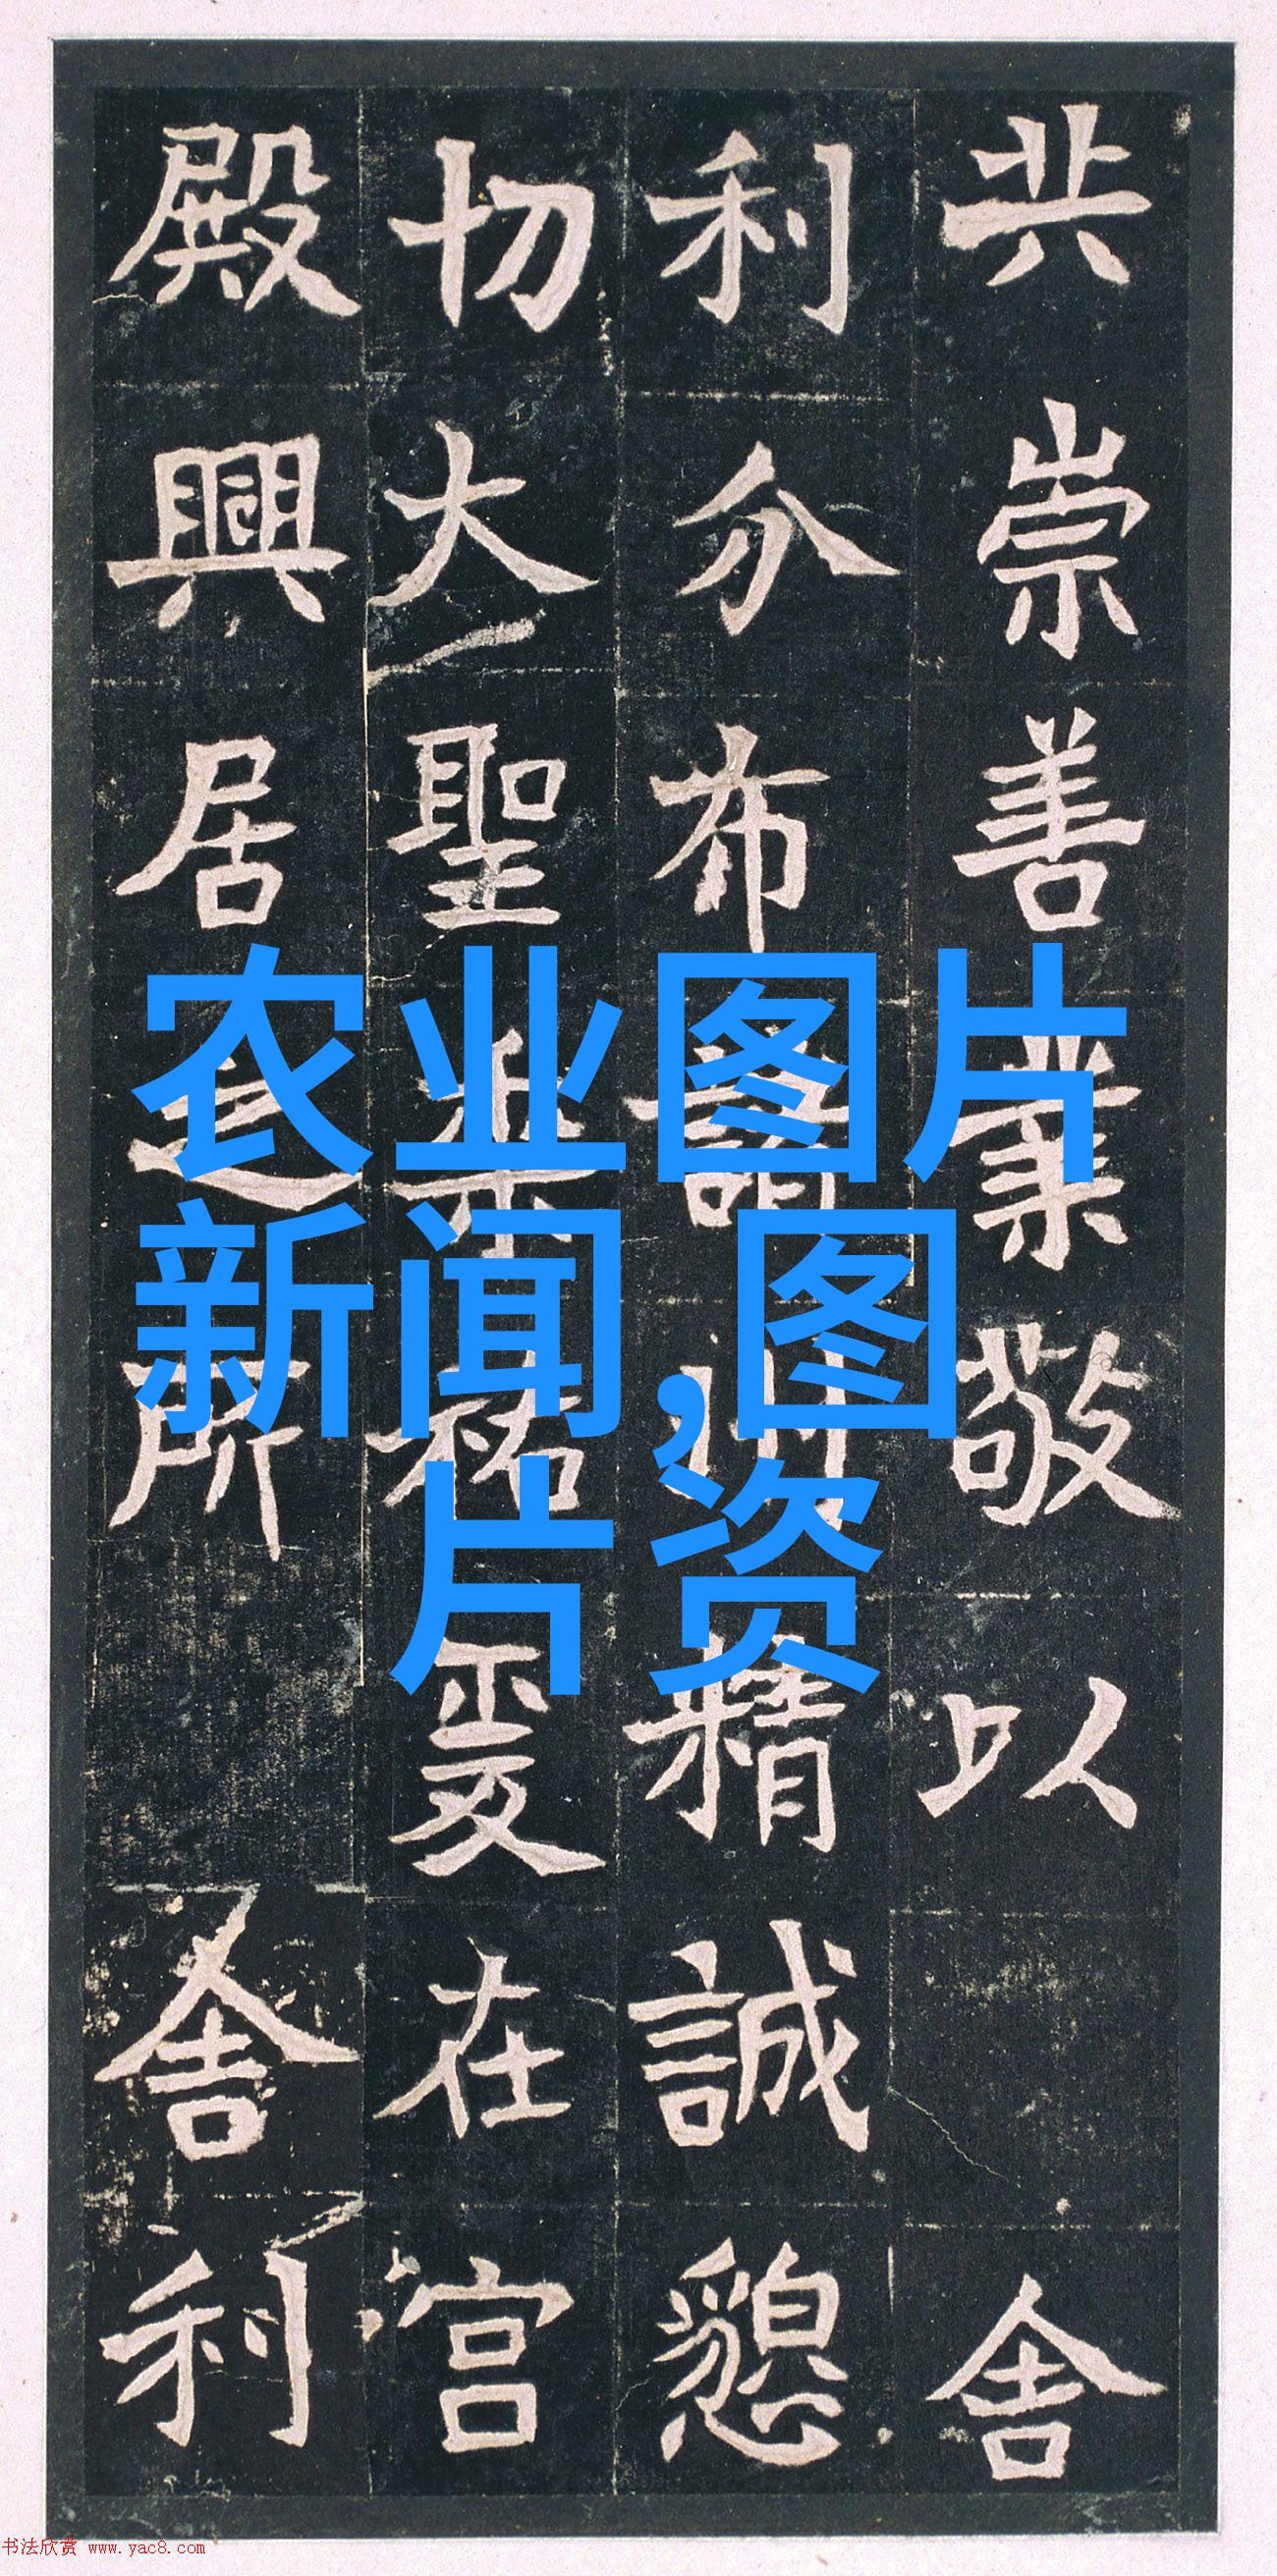 共崇善業敬以舍
利分布諸州精誠懇
切大聖垂祐爰在宮
殿興居之所舍利
农业图片
新闻,图
片资
书法欣赏 www.yac8.com